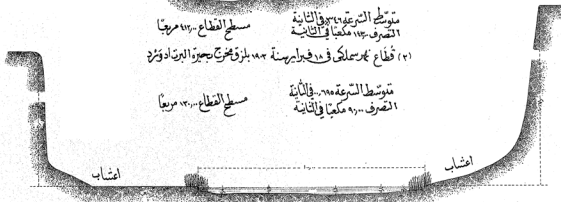 متوسط السرعة ٠٫٣٤٦ في الثانية
التصرف ١٤٣٫٠٠ مكعبا في الثانية
مسطح القطاع ٤١٢٫٠٠ مربعا
(٢) قطاع نهر سملكي في ١٨ فبراير سنة ١٩٠٣ بلزق مخرج بحيرة البرت ادوارد
متوسط السرعة ٠٫٦٩٥ في الثانية
التصرف ٩٠٫٠٠ مكعبا في الثانية
مسطح القطاع ١٣٠٫٠٠ مربعا
اعشاب
اعشاب